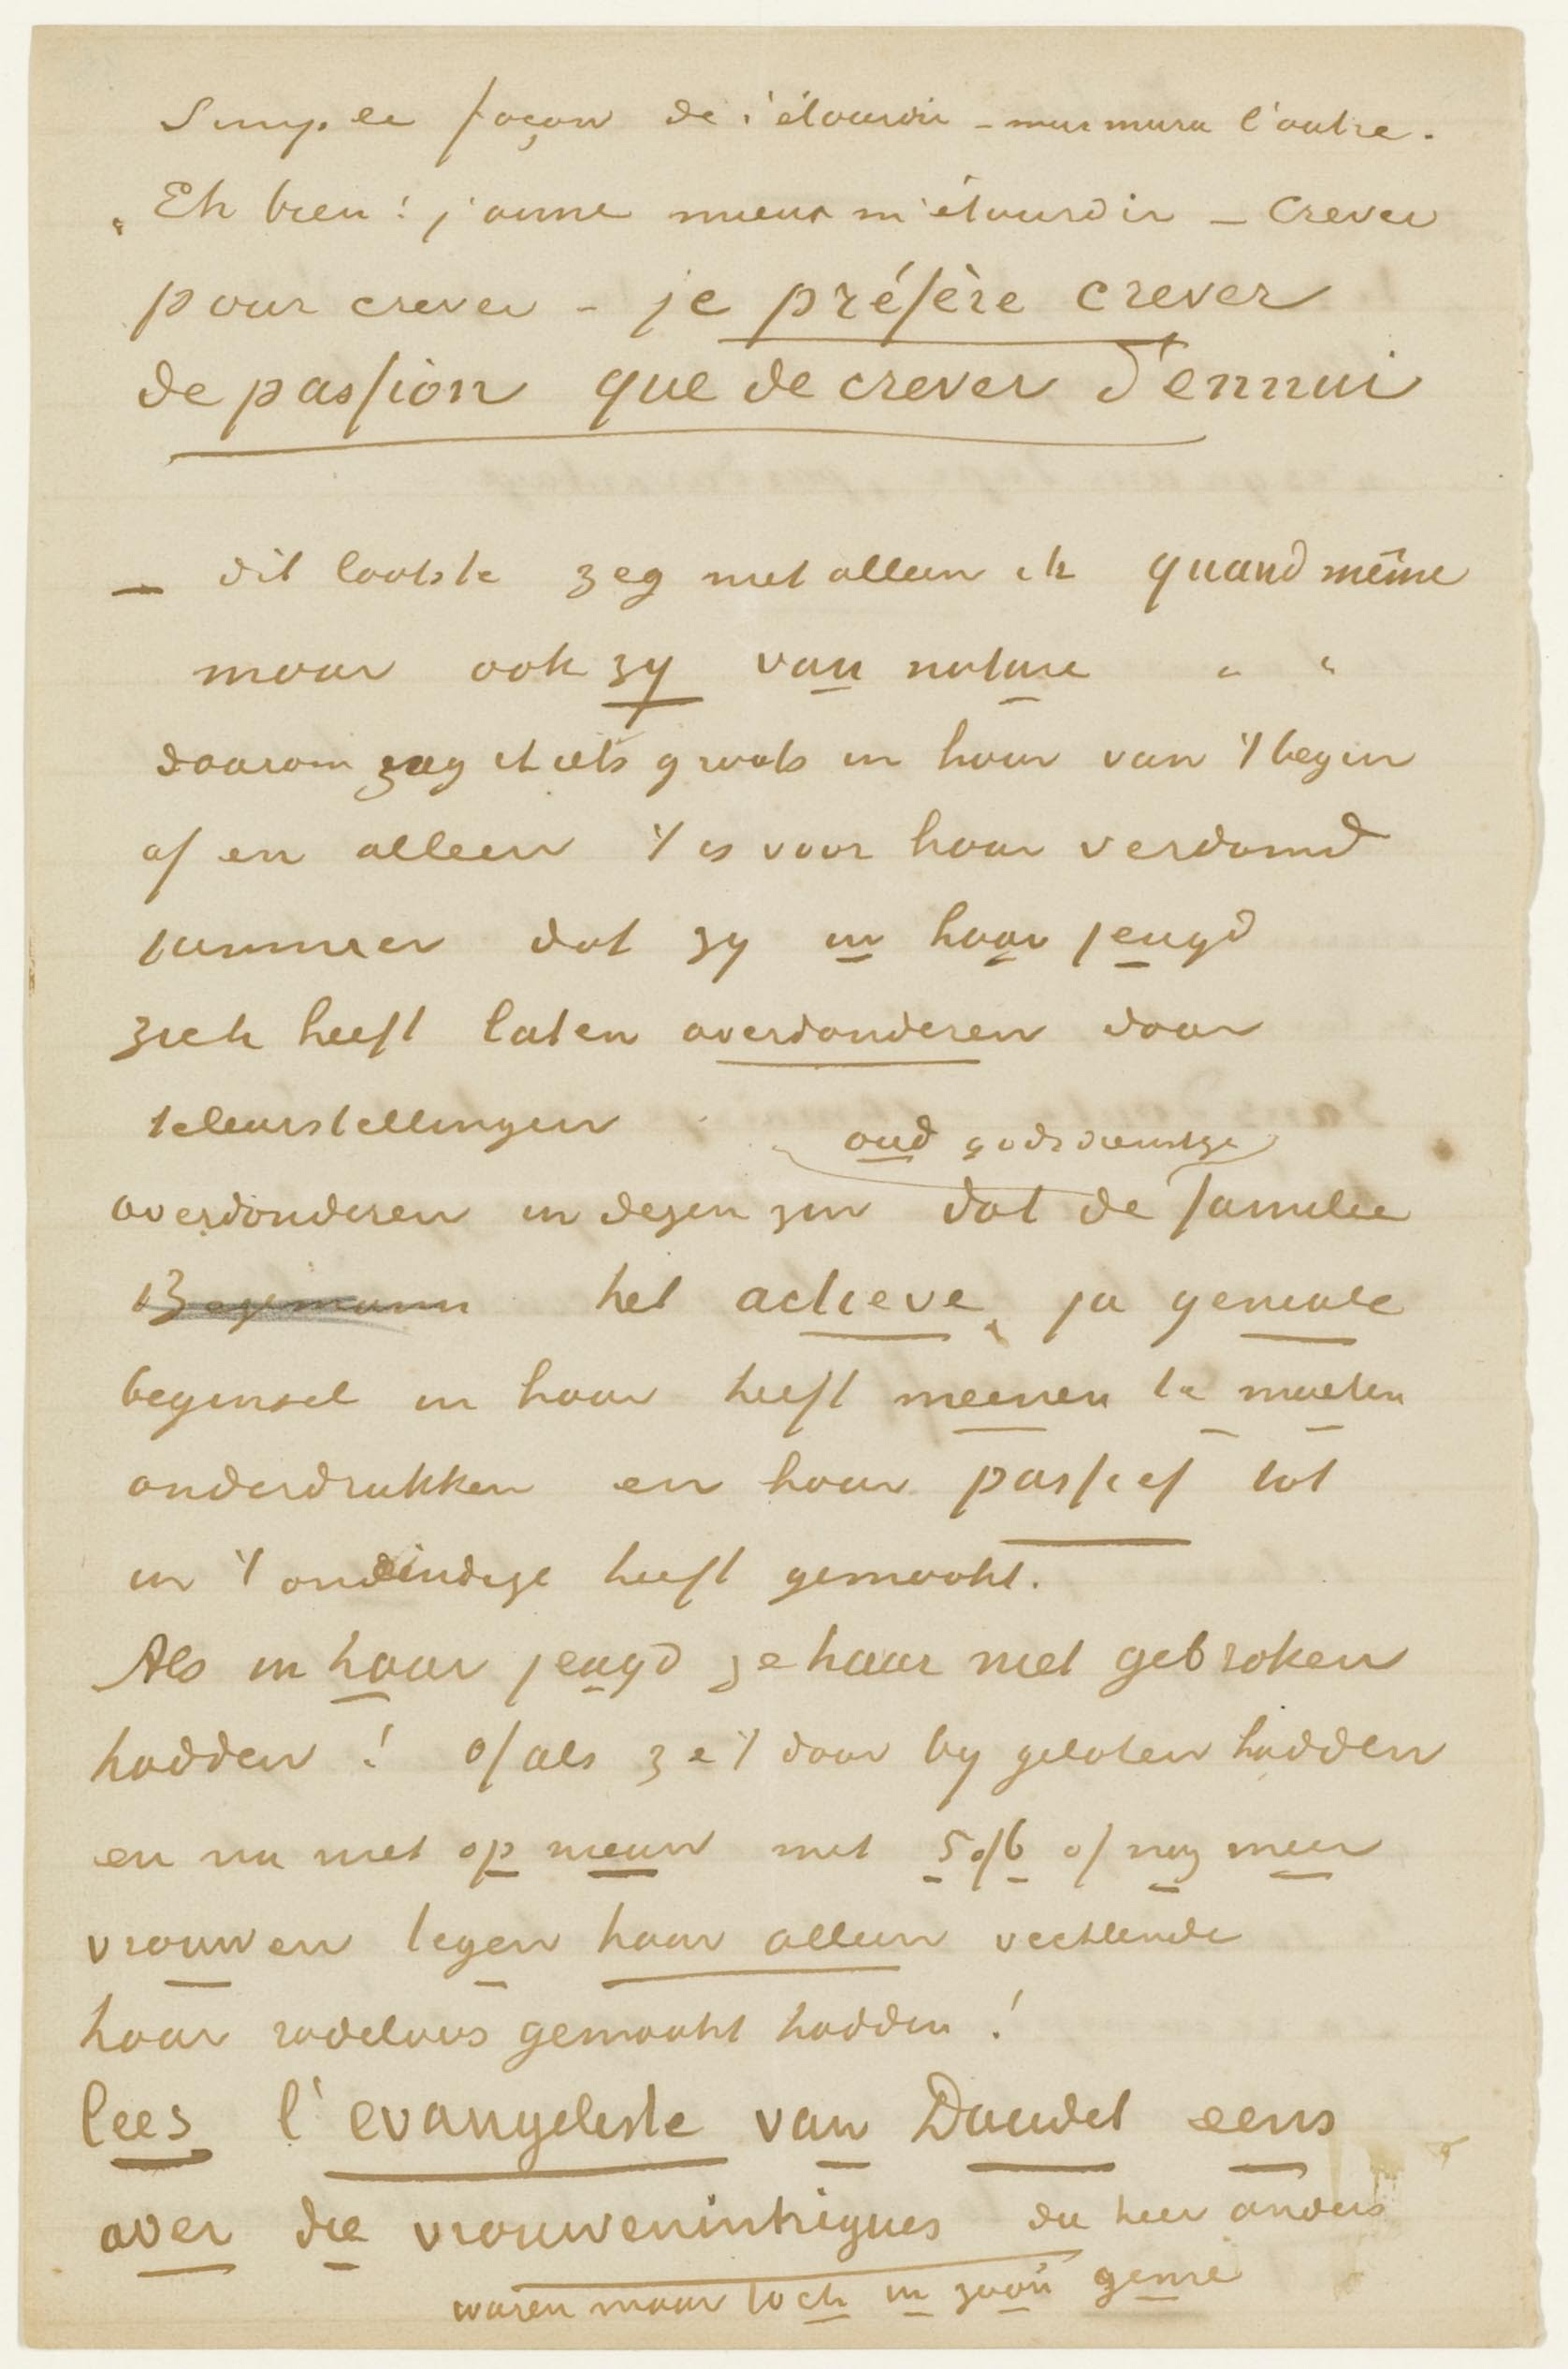 Simple façon de s'étourdir – murmura l'autre.
„Eh bien! j'aime mieux m'étourdir – Crever
pour crever – je préfère crever
de passion que de crever d'ennui
— dit laatste zeg niet alleen ik quand même
maar ook zy van nature „ „
daarom zag ik iets groots in haar van 't begin
af en alleen 't is voor haar verdomd
jammer dat zy in haar jeugd
zich heeft laten overdonderen door
teleurstellingen
oud godsdienstige
overdonderen in dezen zin dat de familie
Begemann het actieve, ja geniale
beginsel in haar heeft meenen te moeten
onderdrukken en haar passief tot
in 't oneindige heeft gemaakt.
Als in haar jeugd ze haar niet gebroken
hadden! of als ze 't daar by gelaten hadden
en nu niet op nieuw met 5 of 6 of nog meer
vrouwen tegen haar alleen vechtende
haar radeloos gemaakt hadden!
lees l'evangeliste van Daudet eens
over die vrouwenintrigues die hier anders
waren maar toch in zoo'n genre